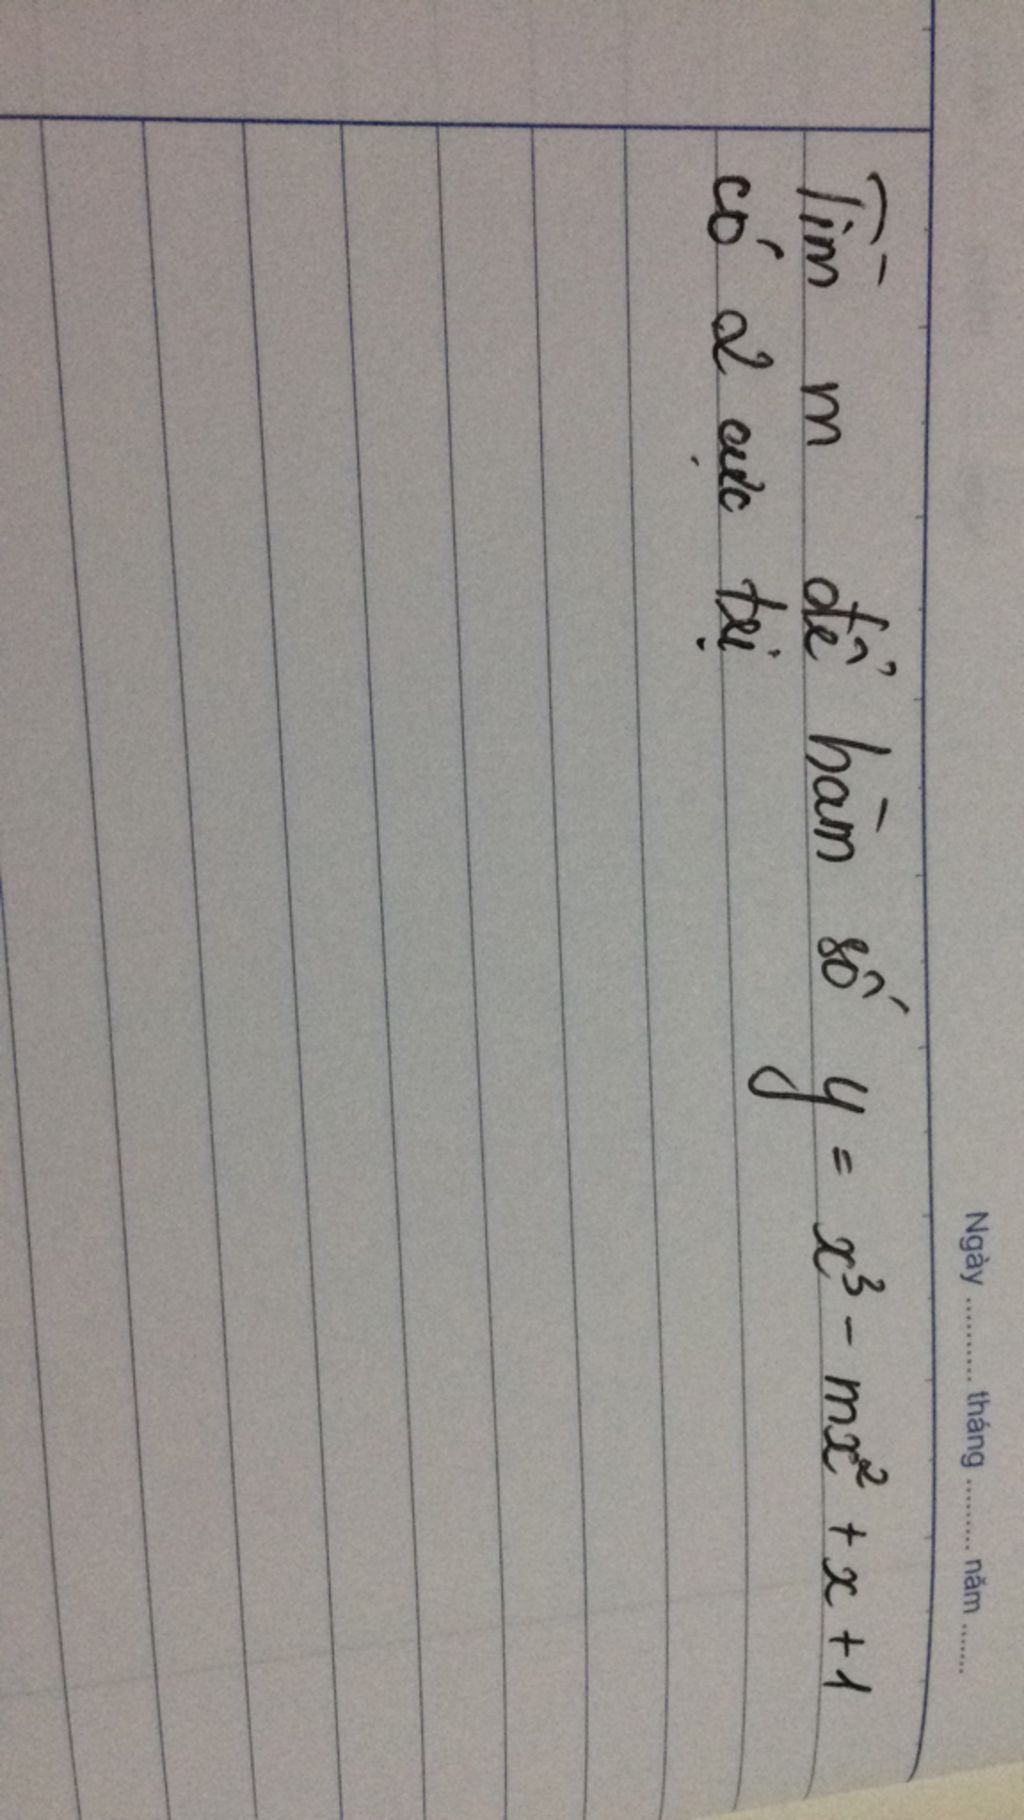 Ngày .......... tháng ......... năm .......
Tìm m để hàm số y = x³ - mx² + x + 1
có 2 cực trị